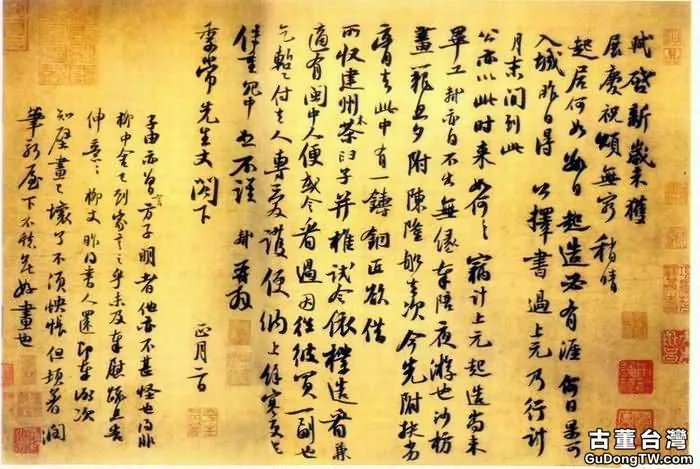 軾啟新歲未獲
展慶祝頌無窮稍晴
起居何如數日起造必有涯何日果可
入城昨日得公擇書過上元乃行計
月末間到此
公亦以此時來如何々竊計上元起造尚未
畢工軾亦自不出無緣奉陪夜遊也沙枋
畫籠旦夕附陳隆船去次今先附扶劣
膏去此中有一鑄銅匠欲借
所收建州木茶臼子并椎試令依樣造看兼
適有閩中人便或令看過因往彼買一副也
乞暫付去人專愛護便納上餘寒更乞
保重冗中恕不謹軾再拜
季常先生丈閣下
正月二日
子由亦曾言方子明者他亦不甚怪也得非
柳中舍已到家言之乎未及奉慰疏且告
伸意々柳丈昨得書人還即奉謝次
知壁畫已壞了不須怏悵但頓著潤
筆新屋下不愁無好畫也
古董台灣
GuDongTW.com